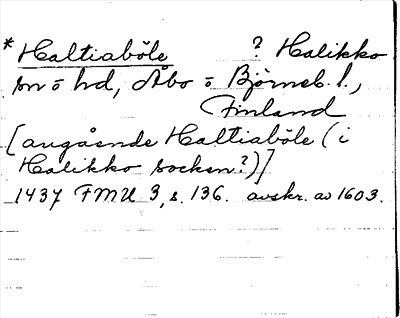 *Haltiaböle ? Halikko
sn o hd, Åbo o Björneb. l.,
Finland
[angående Haltiaböle (i
Halikko socken?)]
1437 FMU 3, s. 136. avskr. av 1603.